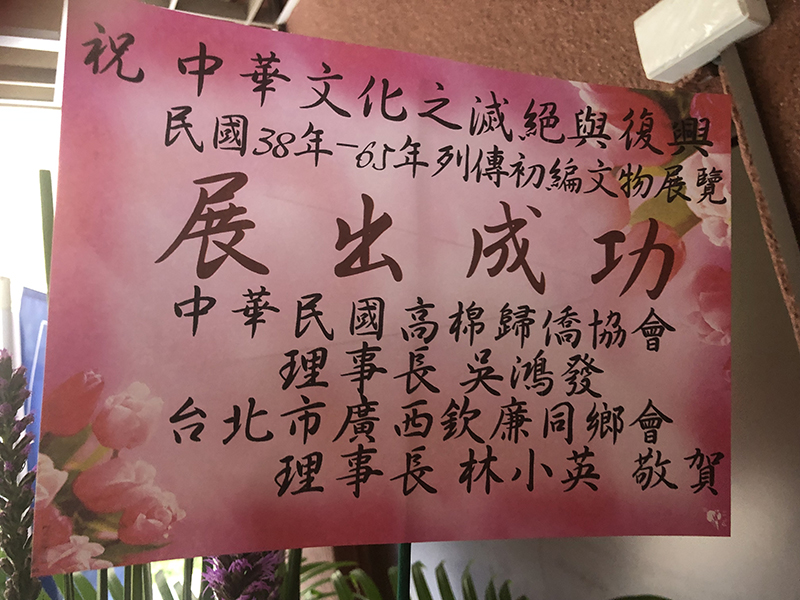 祝 中華文化之滅絕與復興
民國38年-65年列傳初編文物展覽
展出成功
中華民國高棉歸僑協會
理事長 吳鴻發
台北市廣西欽廉同鄉會
理事長 林小英 敬賀